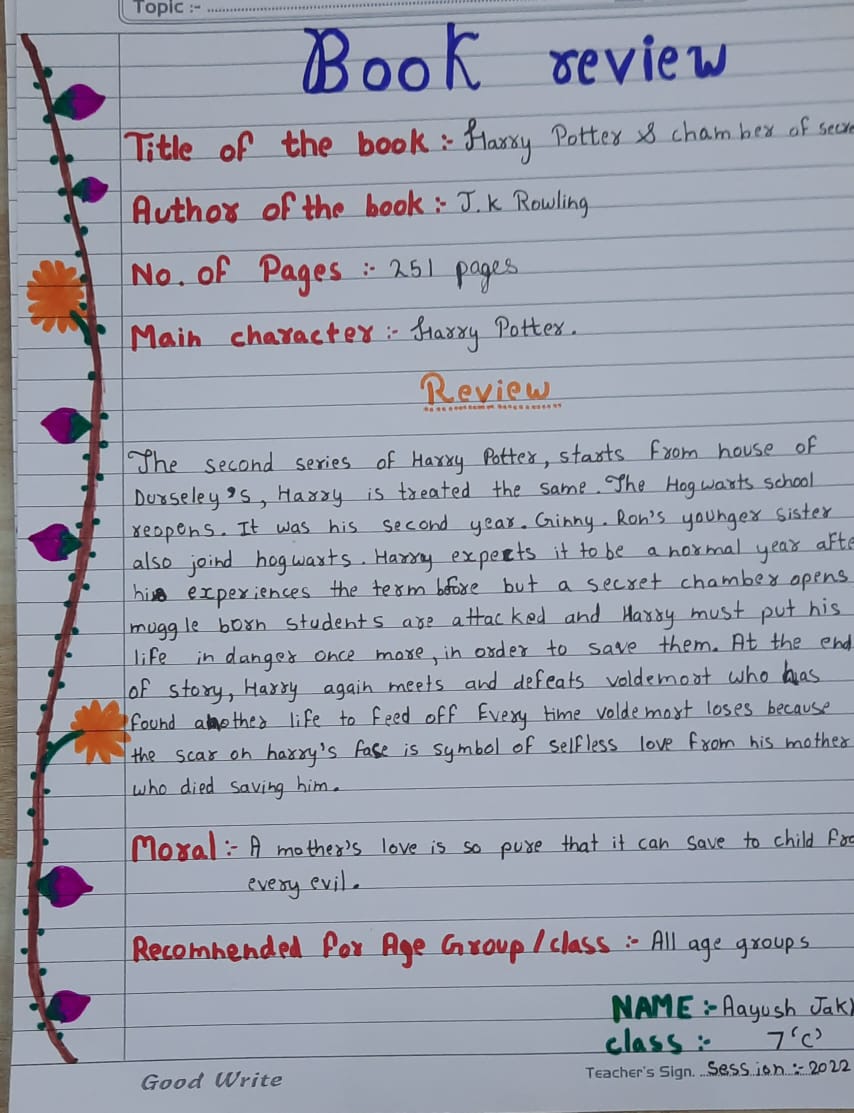 Topic :-
Book review
Title of the book :- Harry Potter & chamber of secre
Author of the book :- J.K Rowling
No. of Pages :- 251 pages
Main character :- Harry Potter.
Review
The second series of Harry Potter, starts from house of
Durseley's, Harry is treated the same. The Hogwarts school
reopens. It was his second year. Ginny. Ron's younger sister
also joind hogwarts. Harry expects it to be a normal year afte
his experiences the term bfore but a secret chamber opens
muggle born students are attacked and Harry must put his
life in danger once more, in order to save them. At the end
of story, Harry again meets and defeats voldemort who has
found another life to feed off Every time voldemort loses because
the scar on harry's face is symbol of selfless love from his mother
who died saving him.
Moral :- A mother's love is so pure that it can save to child fro
every evil.
Recomhended for Age Group/class :- All age groups
NAME :- Aayush Jak
class :- 7'C'
Good Write
Teacher's Sign. Session :- 2022